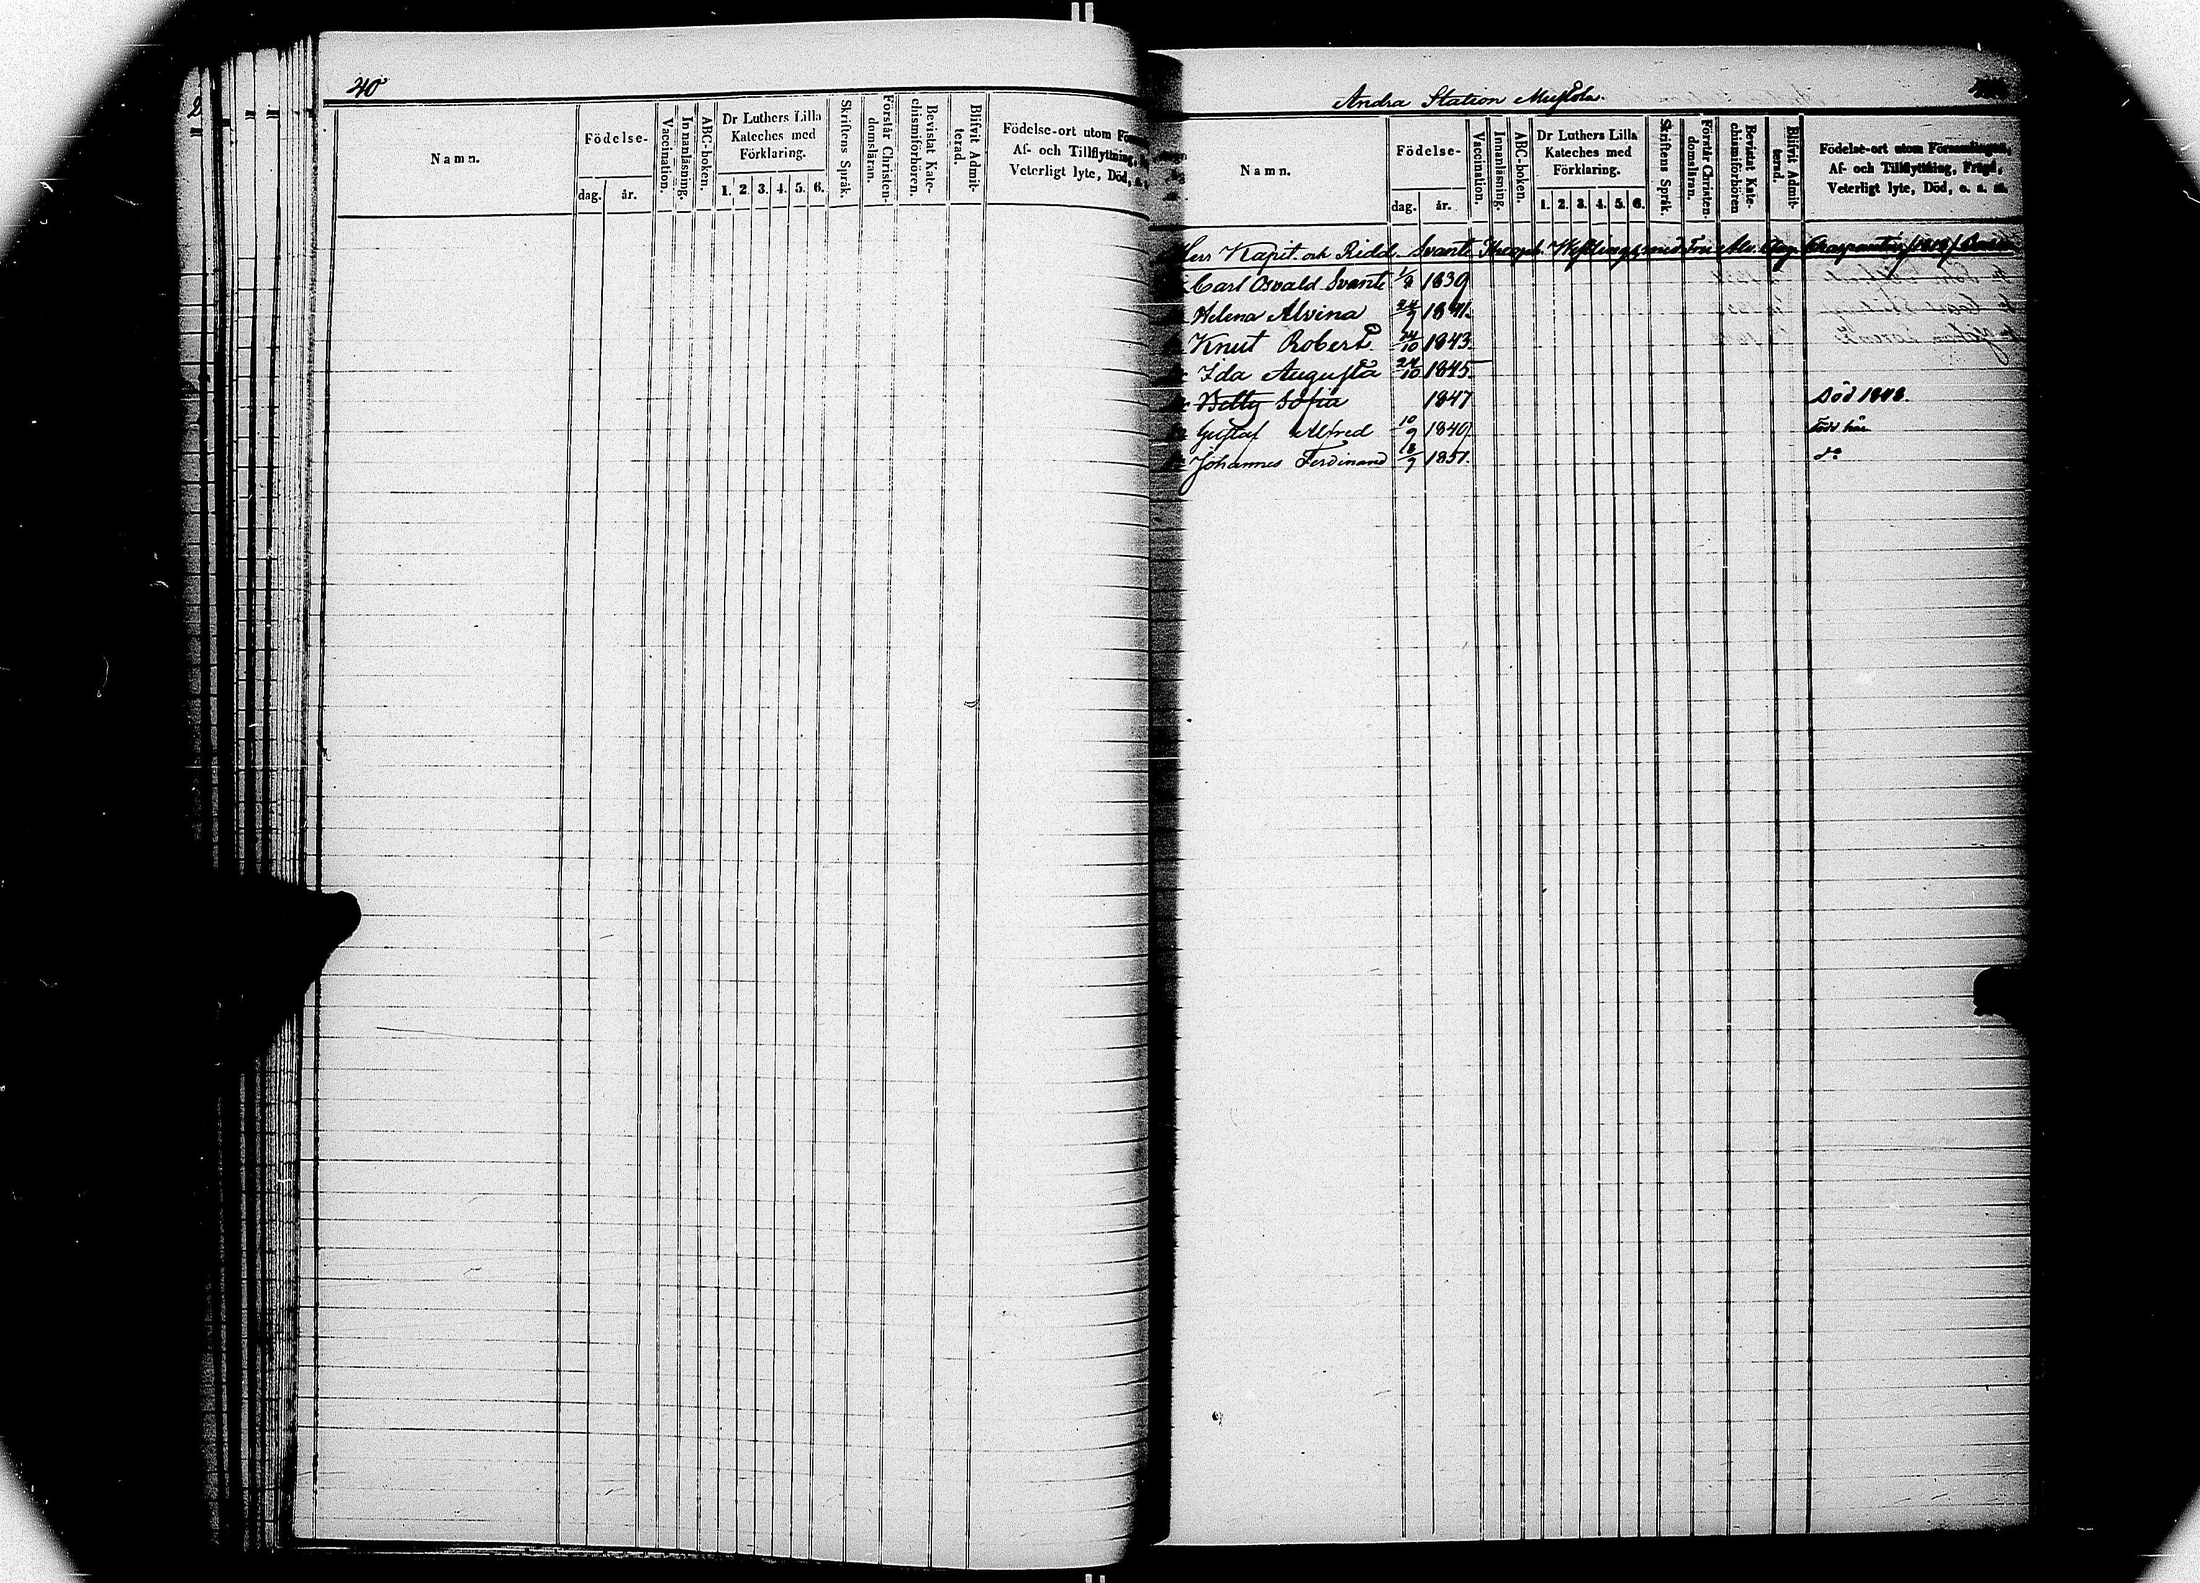 40
Namn.
Födelse-
dag.
år.
Vaccination.
Innanläsning.
ABC-boken.
Dr Luthers Lilla
Kateches med
Förklaring.
1. 2. 3. 4. 5. 6.
Skriftens Språk.
Förstår Christen-
domsläran.
Bevistat Kate-
chismiförhören.
Blifvit Admit-
terad.
Födelse-ort utom
Af- och Tillflyttning,
Veterligt lyte, Död,
Andra Station
Namn.
Födelse-
dag.
år.
Vaccination.
Innanläsning.
ABC-boken.
Dr Luthers Lilla
Kateches med
Förklaring.
1. 2. 3. 4. 5. 6.
Skriftens Språk.
Förstår Christen-
domsläran.
Bevistat Kate-
chismiförhören
Blifvit Admit-
terad.
Födelse-ort utom Församlingen,
Af- och Tillflyttning, Frägd,
Veterligt lyte, Död, o. s. m.
Herr Kapit. och Ridd. Svante med Fru
Carl Osvald Svante 1839
Helena Alvina 1841.
Knut Robert 24/10 1843
Ida Augusta 24/10 1845
Betty Sofia 1847 Död 1848.
Gustaf Alfred 10/9 1849. Född här
Johannes Ferdinand 18/9 1851. do